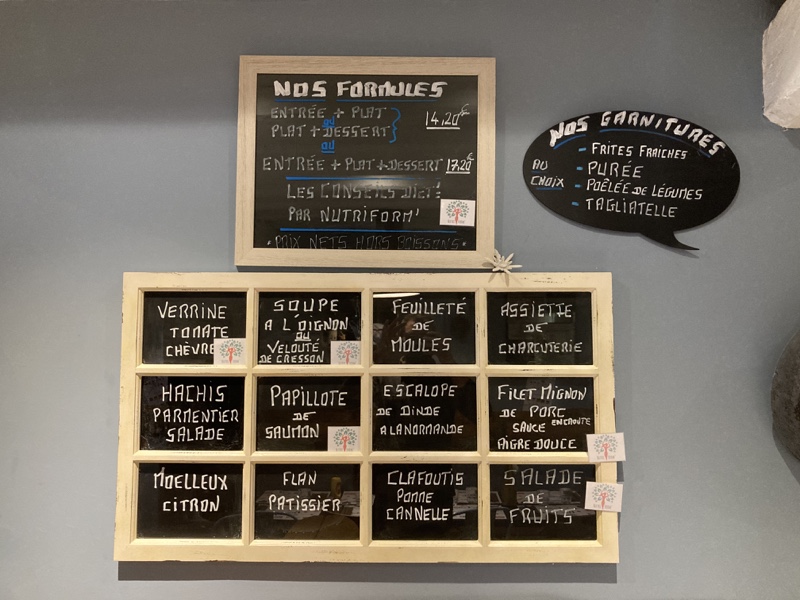 NOS FORMULES
ENTRÉE + PLAT
ou
PLAT + DESSERT
14,20€
ou
ENTRÉE + PLAT + DESSERT 17,20€
LES CONSEILS DIÉT'
PAR NUTRIFORM'
• PRIX NETS HORS BOISSONS •
NOS GARNITURES
AU CHOIX
- FRITES FRAÎCHES
- PURÉE
- POÊLÉE DE LÉGUMES
- TAGLIATELLE
VERRINE
TOMATE
CHÈVRE
SOUPE
A L'OIGNON
ou
VELOUTÉ
DE CRESSON
FEUILLETÉ
DE
MOULES
ASSIETTE
DE
CHARCUTERIE
HACHIS
PARMENTIER
SALADE
PAPILLOTE
DE
SAUMON
ESCALOPE
DE DINDE
A LA NORMANDE
FILET MIGNON
DE PORC
SAUCE EN CROUTE
AIGRE DOUCE
MOELLEUX
CITRON
FLAN
PATISSIER
CLAFOUTIS
POMME
CANNELLE
SALADE
DE
FRUITS